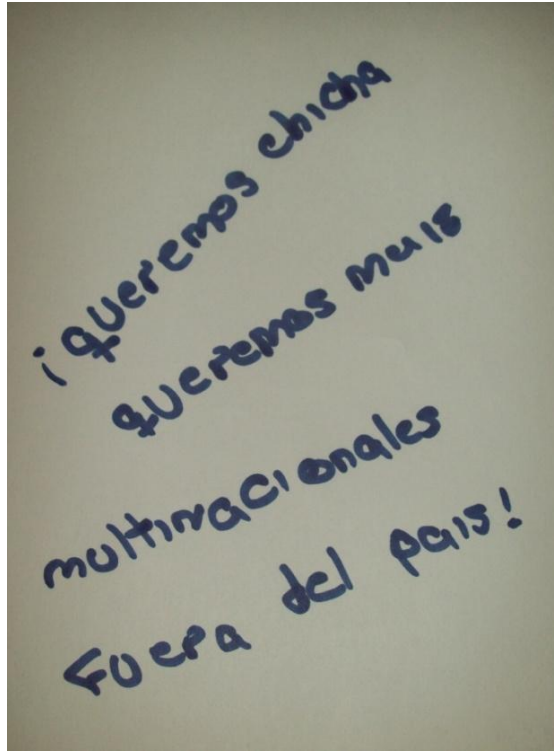 ¡queremos chicha
queremos maiz
multinacionales
fuera del pais!